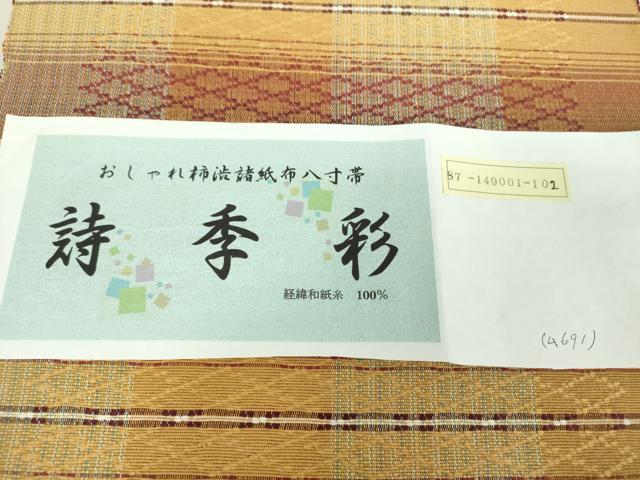 おしゃれ柿渋諸紙布八寸帯
詩季彩
経緯和紙糸 100%
87-149001-102
(4691)